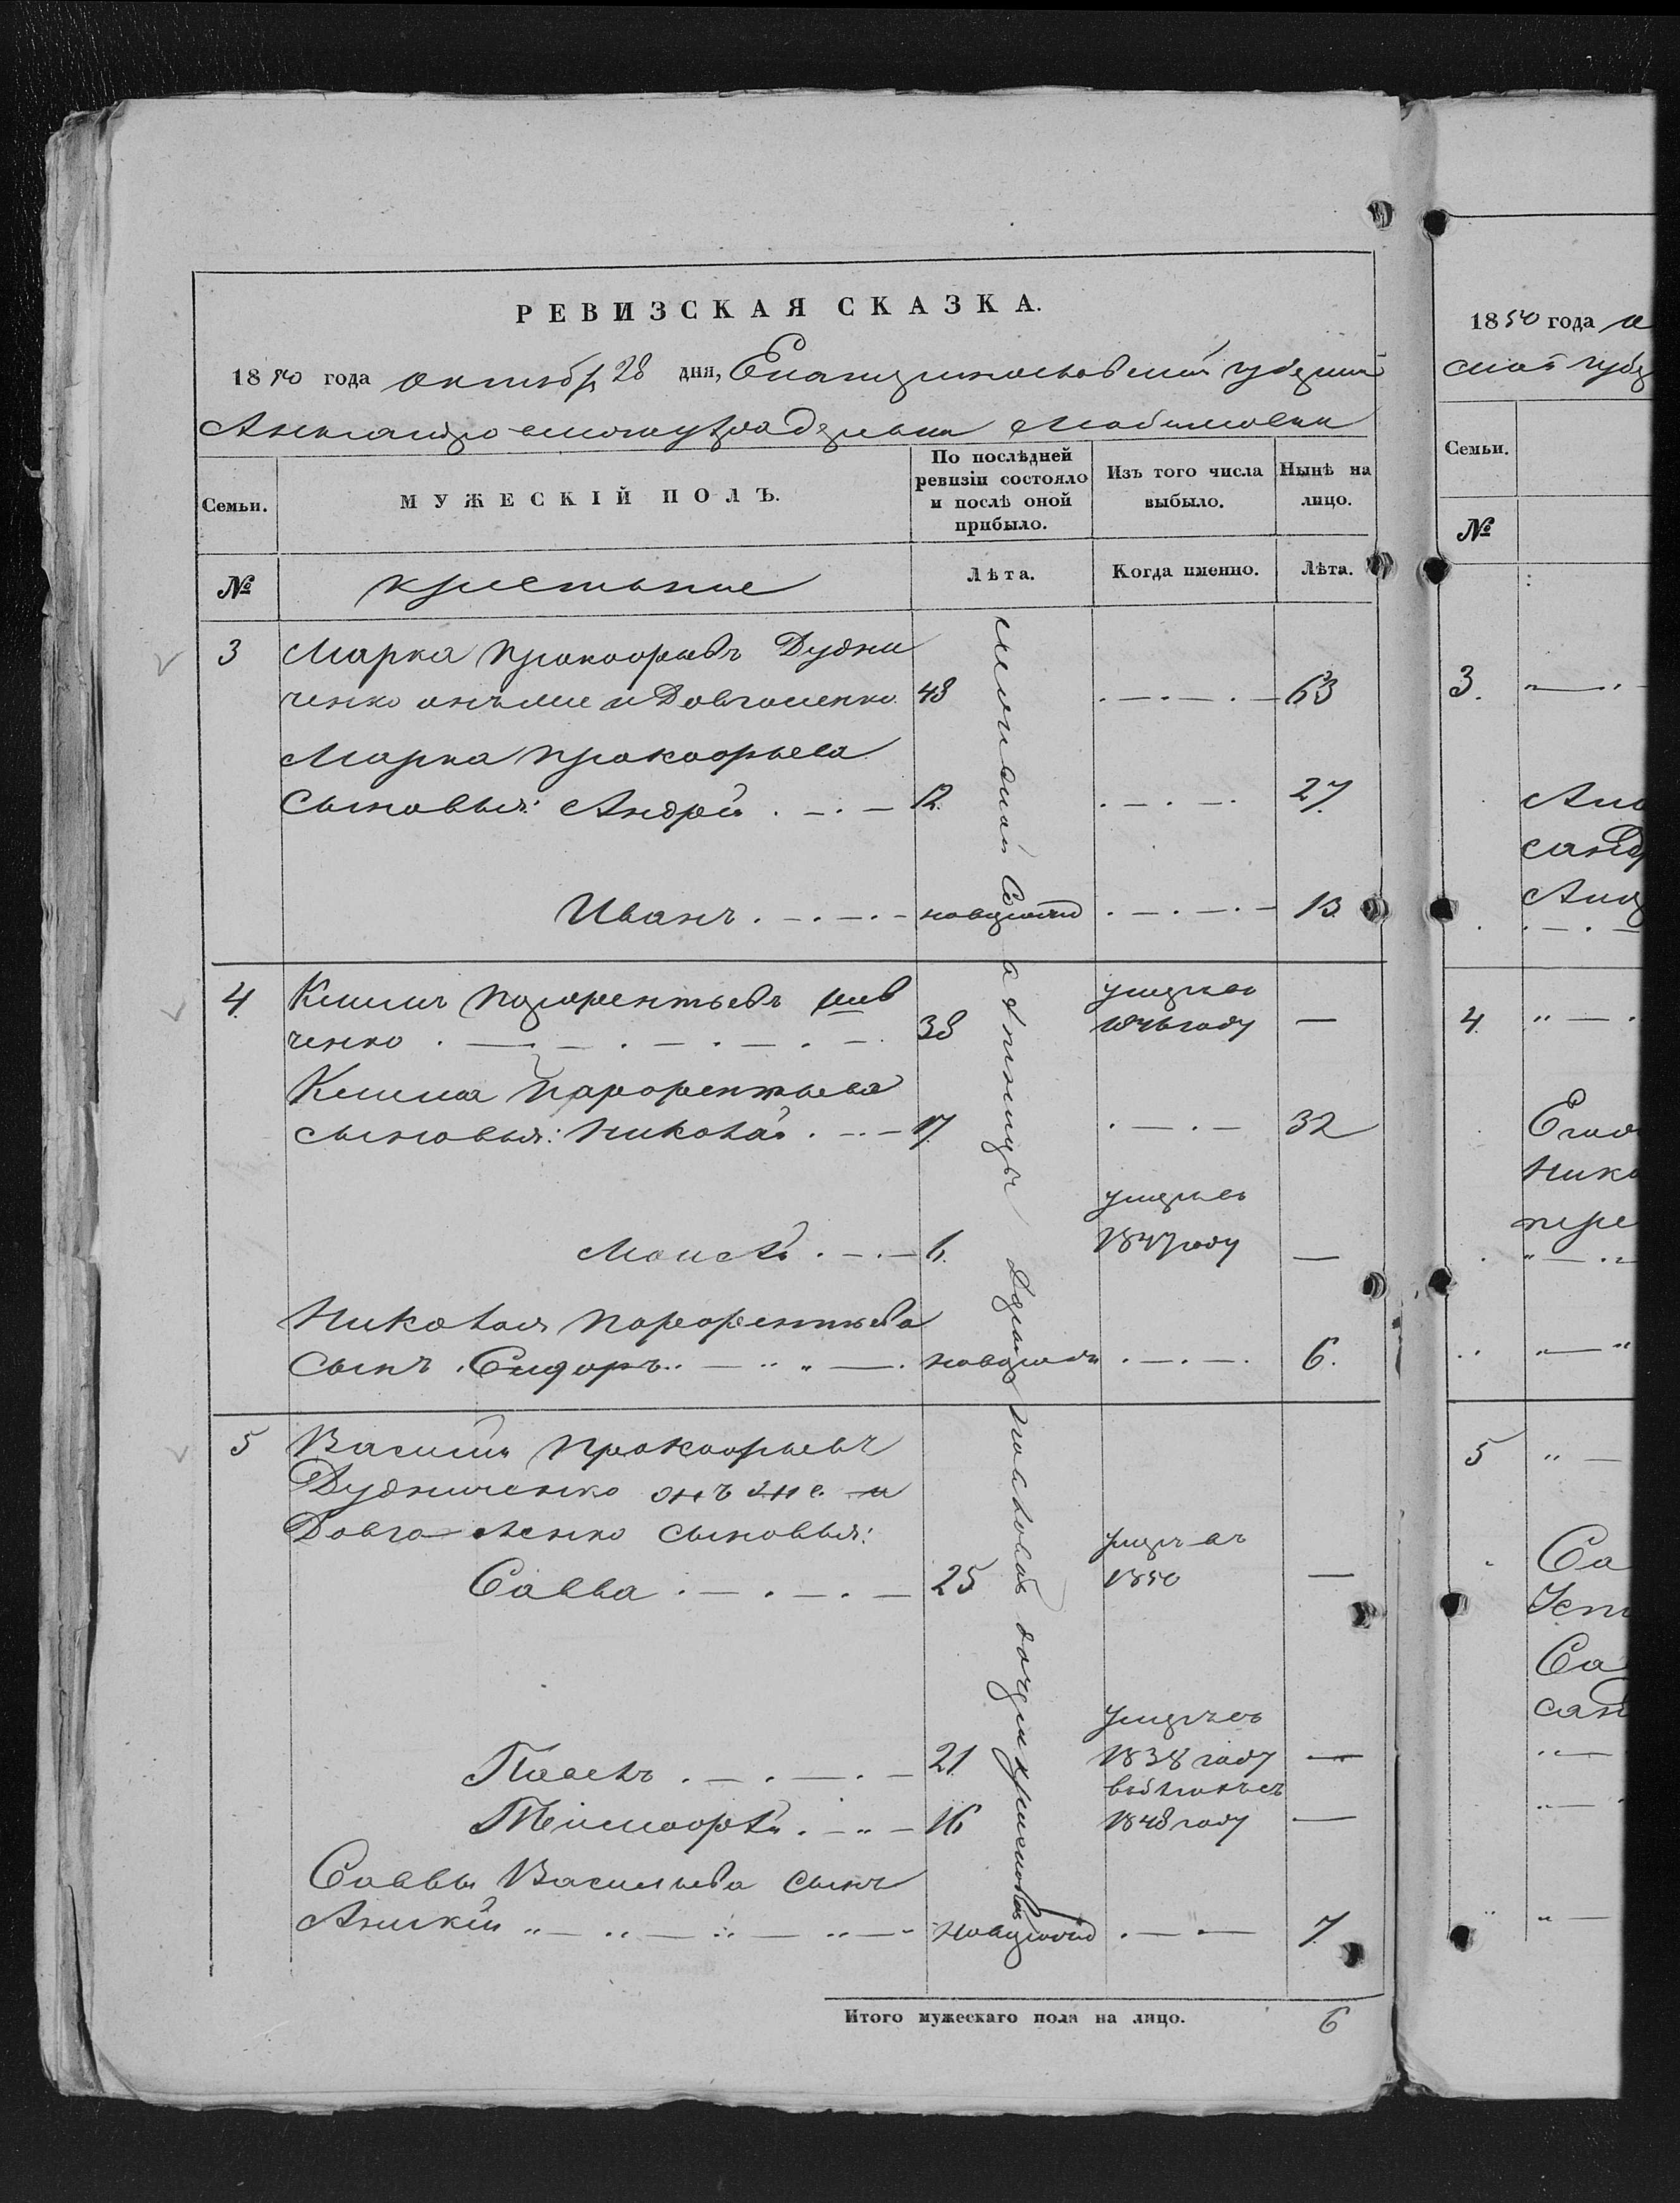 РЕВИЗСКАЯ СКАЗКА.
1850 года октября 28 дня, Екатеринославской губернии
Александровского уезда деревни Любимовки
Семьи.
МУЖЕСКІЙ ПОЛЪ.
По послѣдней ревизіи состояло и послѣ оной прибыло.
Изъ того числа выбыло.
Нынѣ на лицо.
№
крестьяне
Лѣта.
Когда именно.
Лѣта.
3 Марко Прокофьевъ Дудни
ченко онъ же и Довгошенко 48 63
Марка Прокофьева
Сыновья: Андрей 12. 27.
Иванъ новорожд 13
4 Климъ Парфентьевъ Шев
ченко 38 умеръ въ 1846 году —
Клима Парфентьева
сыновья: Николай 17. 32
Моисей 6. умеръ въ 1847 году —
Николая Парфентьева
Сынъ Сидоръ новорожд 6.
5 Василія Прокофьевъ
Дудниченко онъ же и
Довго шенко сыновья:
Савва 25 умеръ въ 1850 —
Павелъ 21. умеръ въ 1838 году —
Тимофей 16 1848 году —
Саввы Васильева сынъ
новорожд 7.
Итого мужескаго пола на лицо. 6
1850 года о
ской губер
Семьи.
№
3.
Анд
санд
Анд
4.
Нико
пер
5
Са
Са
сан